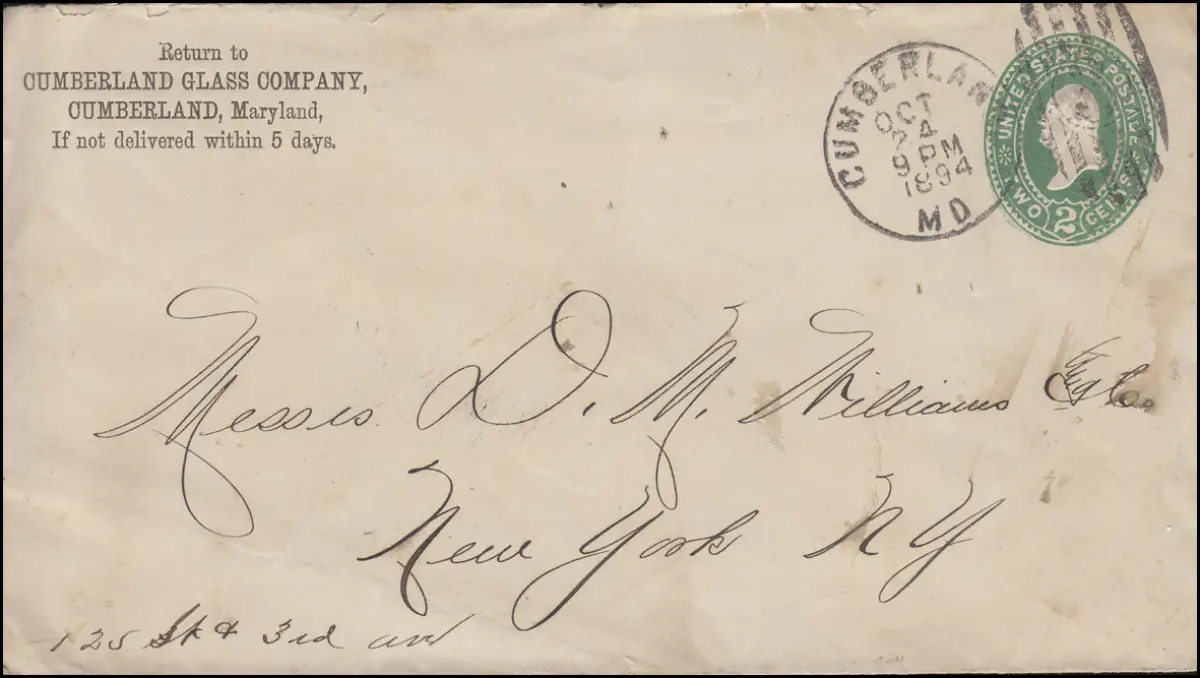 Return to
CUMBERLAND GLASS COMPANY,
CUMBERLAND, Maryland,
If not delivered within 5 days.
CUMBERLAN
OCT
24
9 PM
1894
MD
UNITED STATES POSTAGE
TWO 2 CENTS
Messrs. D. M. Williams & Co.
New York NY
125 St & 3rd ave